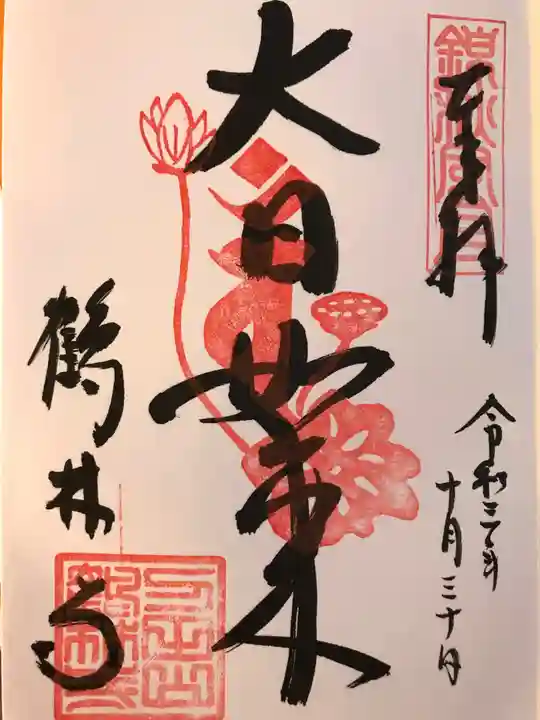 奉拝
令和三年
十月三十日
大日如来
鶴林寺